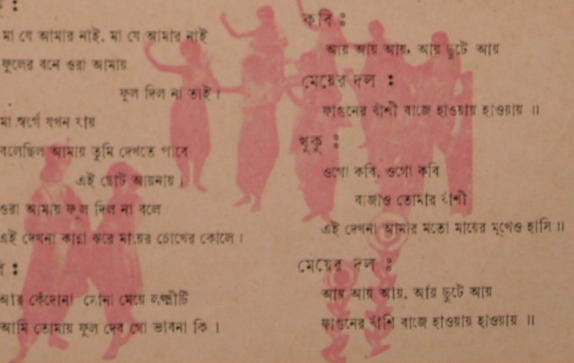 :
মা যে আমার নাই, মা যে আমার নাই
ফুলের বনে ওরা আমায়
ফুল দিল না তাই ।
মা স্বর্গে যখন যায়
বলেছিল আমায় তুমি দেখতে পাবে
এই ছোট আয়নায় ।
ওরা আমায় ফুল দিল না বলে
এই দেখনা কান্না ঝরে মায়ের চোখের কোলে ।
:
আর কেঁদোনা সোনা মেয়ে লক্ষ্মীটি
আমি তোমায় ফুল দেব গো ভাবনা কি ।
কবি :
আয় আয় আয়, আয় ছুটে আয়
মেয়ের দল :
ফাগুনের বাঁশী বাজে হাওয়ায় হাওয়ায় ॥
খুকু :
ওগো কবি, ওগো কবি
বাজাও তোমার বাঁশী
এই দেখনা আমার মতো মায়ের মুখেও হাসি ॥
মেয়ের দল :
আয় আয় আয়, আয় ছুটে আয়
ফাগুনের বাঁশি বাজে হাওয়ায় হাওয়ায় ॥